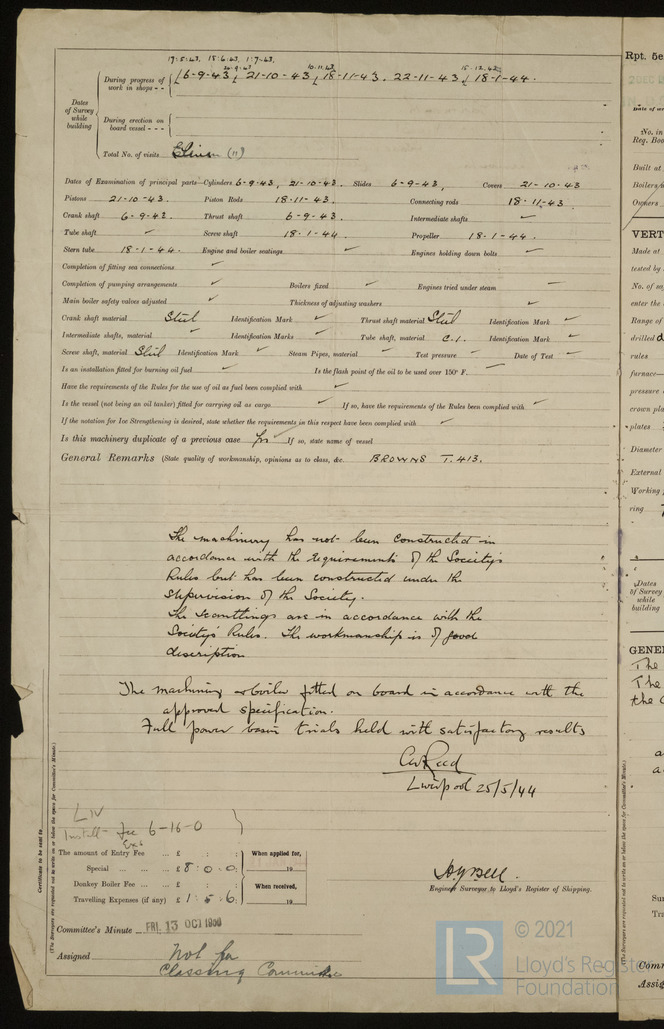 17.5.43, 15.6.43, 1.7.43,
During progress of work in shops - - 6-9-43, 21-10-43, 18-11-43, 22-11-43, 18-1-44.
10.11.43
15.12.43
Dates of Survey while building
During erection on board vessel - - -
Total No. of visits Eleven (11)
Dates of Examination of principal parts—Cylinders 6-9-43, 21-10-43. Slides 6-9-43, Covers 21-10-43
Pistons 21-10-43. Piston Rods 18-11-43. Connecting rods 18-11-43.
Crank shaft 6-9-43. Thrust shaft 6-9-43. Intermediate shafts ✓
Tube shaft ✓ Screw shaft 18-1-44. Propeller 18-1-44.
Stern tube 18-1-44. Engine and boiler seatings ✓ Engines holding down bolts ✓
Completion of fitting sea connections ✓
Completion of pumping arrangements ✓ Boilers fixed ✓ Engines tried under steam
Main boiler safety valves adjusted ✓ Thickness of adjusting washers ✓
Crank shaft material Steel Identification Mark ✓ Thrust shaft material Steel Identification Mark ✓
Intermediate shafts, material ✓ Identification Marks ✓ Tube shaft, material C.I. Identification Mark ✓
Screw shaft, material Steel Identification Mark ✓ Steam Pipes, material ✓ Test pressure ✓ Date of Test ✓
Is an installation fitted for burning oil fuel ✓ Is the flash point of the oil to be used over 150° F. ✓
Have the requirements of the Rules for the use of oil as fuel been complied with ✓
Is the vessel (not being an oil tanker) fitted for carrying oil as cargo ✓ If so, have the requirements of the Rules been complied with ✓
If the notation for Ice Strengthening is desired, state whether the requirements in this respect have been complied with ✓
Is this machinery duplicate of a previous case ✓ If so, state name of vessel
General Remarks (State quality of workmanship, opinions as to class, &c. BROWNS T.413.
The machinery has not been constructed in
accordance with the requirements of the Society's
Rules but has been constructed under the
supervision of the Society.
The scantlings are in accordance with the
Society's Rules. The workmanship is of good
description
The machinery & boiler fitted on board in accordance with the
approved specification.
Full power basin trials held with satisfactory results
Liverpool 25/5/44
LIV
Install- fee 6-16-0
Exs
The amount of Entry Fee ... £ : : When applied for,
Special ... £ 8 : 0 : 0 19
Donkey Boiler Fee ... £ : : When received,
Travelling Expenses (if any) £ 1 : 5 : 6 19
Engineer Surveyor to Lloyd's Register of Shipping.
Committee's Minute FRI. 13 OCT
Assigned Not for
Classing Committee
Certificate to be sent to
(The Surveyors are requested not to write on or below the space for Committee's Minute.)
© 2021
Lloyd's Register
Foundation
LR
Rpt. 5c
No. in
Reg. Boo
Built at
Boilers
Owners
VERT
Made at
tested by
No. of sa
enter the
Range of
drilled
rules
furnace
pressure
crown pla
plates
Diameter
External
Working
ring
Dates
of Survey
while
building
GENE
The
The
the
Sur
Tra
Comm
Assig